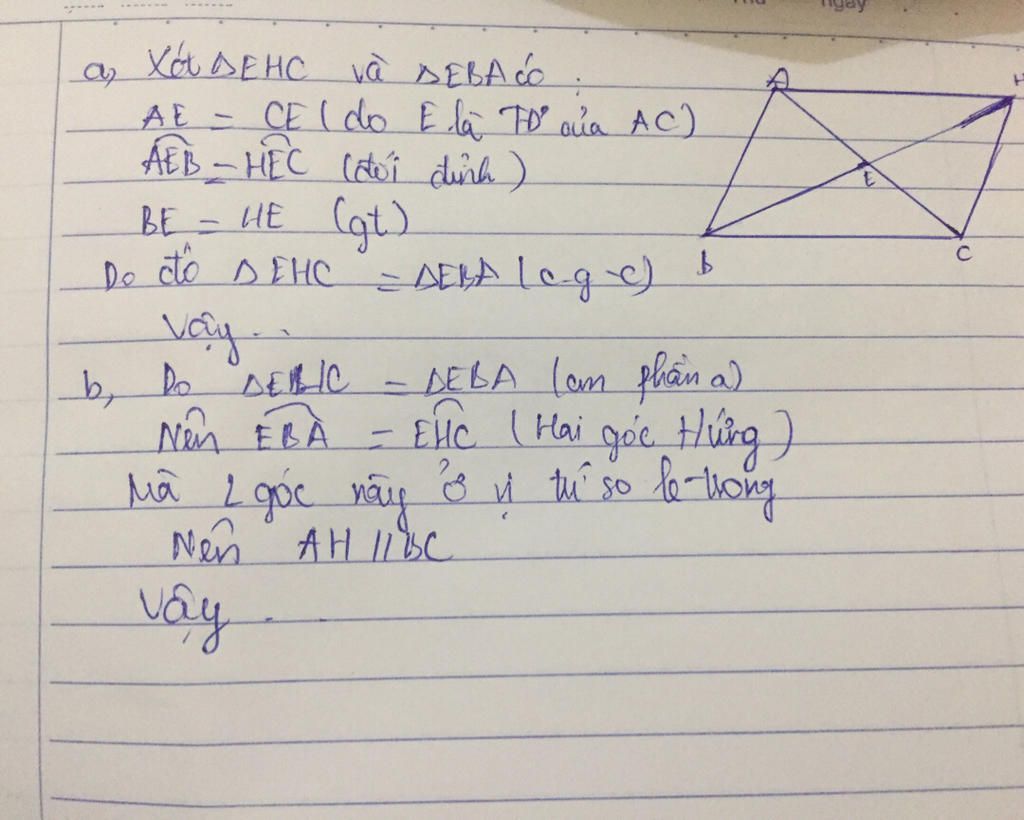 Thứ
ngày
a, Xét ΔEHC và ΔEBA có :
AE = CE (do E là TĐ của AC)
AEB = HEC (đối đỉnh)
BE = HE (gt)
Do đó ΔEHC = ΔEBA (c-g-c)
Vậy ...
b, Do ΔEHC = ΔEBA (cm phần a)
Nên EBA = EHC (Hai góc tứng)
Mà 2 góc này ở vị trí so le trong
Nên AH // BC
Vậy ...
A
H
E
B
C